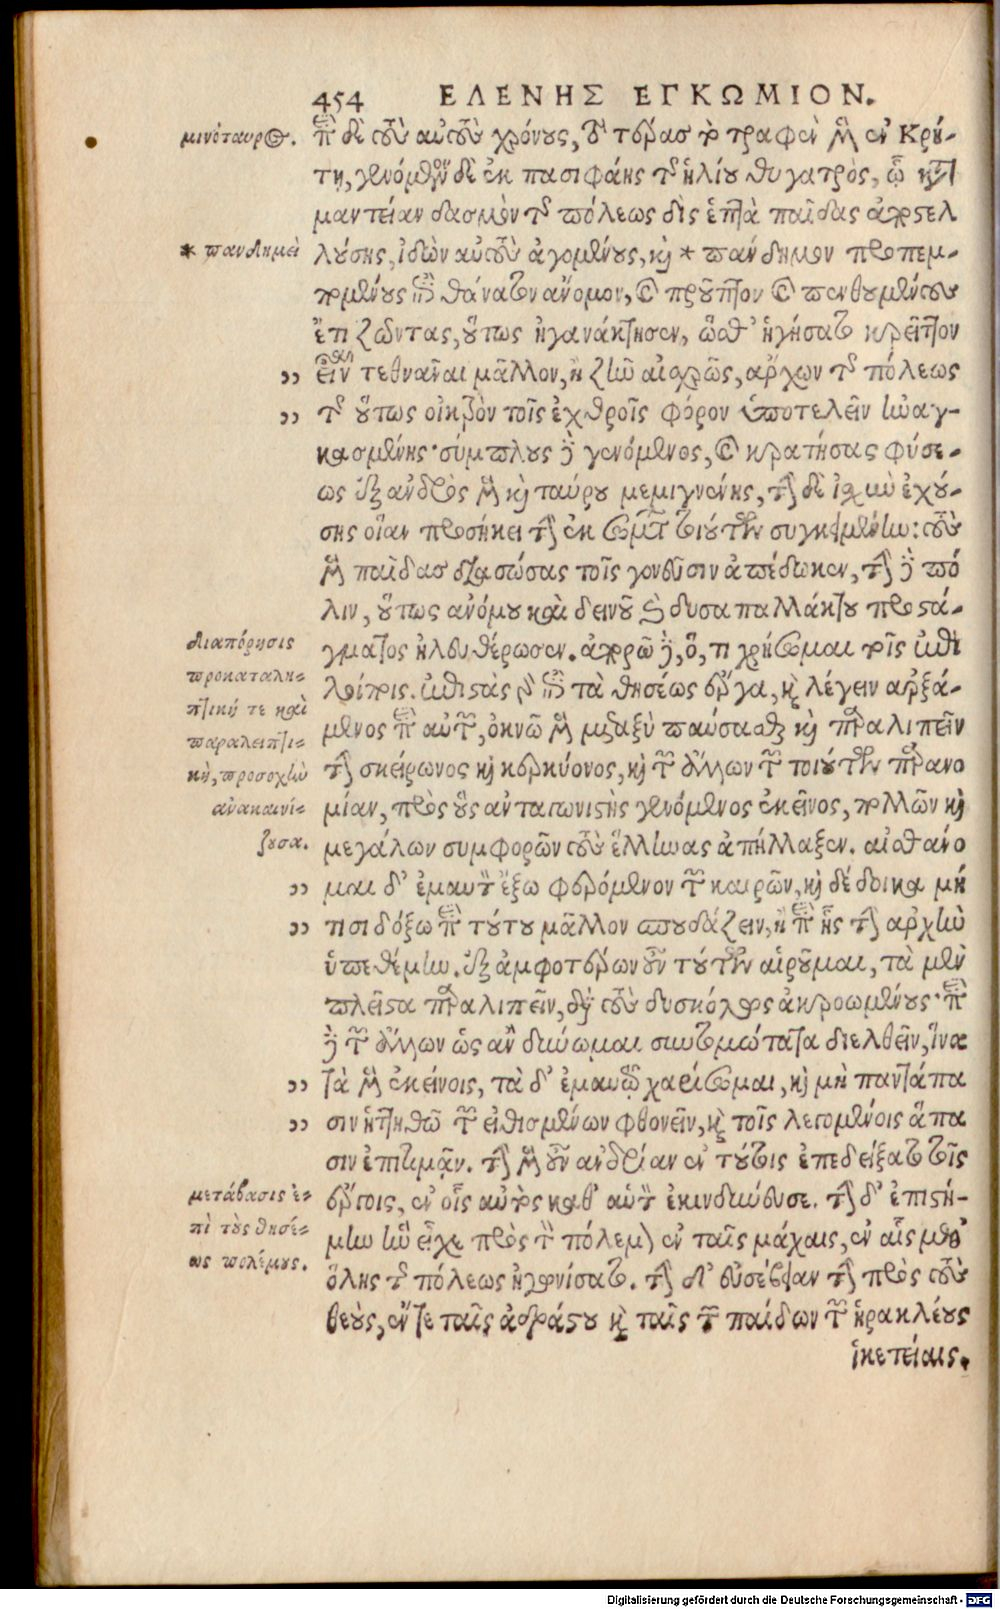 454 ΕΛΕΝΗΣ ΕΓΚΩΜΙΟΝ.
μινόταυρος. περὶ δὲ τοὺς αὐτοὺς χρόνους, τὸ τέρας τὸ τραφὲν μὲν ἐν Κρή-
τῃ, γενόμενον δὲ ἐκ πασιφάης τῆς ἡλίου θυγατρὸς, ᾧ κατὰ
μαντείαν δασμὸν τῆς πόλεως δὶς ἑπτὰ παῖδας ἀποστελ
* πανδημεὶ λούσης, ἰδὼν αὐτοὺς ἀγομένους, καὶ * πάνδημον προπεμ-
πομένους ἐπὶ θάνατον ἄνομον, καὶ προῦπτον καὶ πενθουμένους
ἔτι ζῶντας, οὕτως ἠγανάκτησεν, ὥσθ' ἡγήσατο κρεῖττον
,, εἶναι τεθνᾶναι μᾶλλον, ἢ ζῆν αἰσχρῶς, ἄρχων τῆς πόλεως
,, τῆς οὕτως οἰκτρὸν τοῖς ἐχθροῖς φόρον ὑποτελεῖν ἠναγ-
κασμένης· σύμπλους δὲ γενόμενος, καὶ κρατήσας φύσε-
ως ἐξ ἀνδρὸς μὲν καὶ ταύρου μεμιγμένης, τὴν δὲ ἰσχὺν ἐχού-
σης οἵαν προσήκει τὴν ἐκ σωμάτων τοιούτων συγκειμένην: τοὺς
μὲν παῖδας διασώσας τοῖς γονεῦσιν ἀπέδωκεν, τὴν δὲ πό
λιν, οὕτως ἀνόμου καὶ δεινοῦ καὶ δυσαπαλλάκτου προστά-
διαπόρησις γματος ἠλευθέρωσεν. ἀπορῶ δὲ, ὅ, τι χρήσωμαι τοῖς ἐπι
προκαταλη- λοίποις. ἐπιστὰς γὰρ ἐπὶ τὰ θησέως ἔργα, καὶ λέγειν ἀρξά-
πτική τε καὶ
παραλειπτι- μενος περὶ αὐτῶν, ὀκνῶ μὲν μεταξὺ παύσασθαι καὶ παραλιπεῖν
κὴ, προσοχὴν τὴν σκείρωνος καὶ κερκύονος, καὶ τῶν ἄλλων τῶν τοιούτων παρανο
ἀνακαινί- μίαν, πρὸς οὓς ἀνταγωνιστὴς γενόμενος ἐκεῖνος, πολλῶν καὶ
ζουσα. μεγάλων συμφορῶν τοὺς ἕλληνας ἀπήλλαξεν. αἰσθάνο
,, μαι δ' ἐμαυτὸν ἔξω φερόμενον τῶν καιρῶν, καὶ δέδοικα μή
,, τισι δόξω περὶ τούτου μᾶλλον σπουδάζειν, ἢ περὶ ἧς τὴν ἀρχὴν
ὑπεθέμην. ἐξ ἀμφοτέρων οὖν τούτων αἱροῦμαι, τὰ μὲν
πλεῖστα παραλιπεῖν, διὰ τοὺς δυσκόλως ἀκροωμένους· περὶ
δὲ τῶν ἄλλων ὡς ἂν δύνωμαι συντομώτατα διελθεῖν, ἵνα
,, τὰ μὲν ἐκείνοις, τὰ δ' ἐμαυτῷ χαρίσωμαι, καὶ μὴ παντάπα
,, σιν ἡττηθῶ τῶν εἰθισμένων φθονεῖν, καὶ τοῖς λεγομένοις ἅπα
σιν ἐπιτιμᾷν. τὴν μὲν οὖν ἀνδρίαν ἐν τούτοις ἐπεδείξατο τοῖς
μετάβασις ἐ- ἔργοις, ἐν οἷς αὐτὸς καθ' αὑτὸν ἐκινδύνευσε. τὴν δ' ἐπιστή-
πὶ τοὺς θησέ- μην ἣν εἶχε πρὸς τὸν πόλεμον ἐν ταῖς μάχαις, ἐν αἷς μεθ'
ως πολέμους. ὅλης τῆς πόλεως ἠγωνίσατο. τὴν δ' εὐσέβειαν τὴν πρὸς τοὺς
θεοὺς, ἔν τε ταῖς ἀδράστου καὶ ταῖς τῶν παίδων τῶν ἡρακλέους
ἱκετείαις.
Digitalisierung gefördert durch die Deutsche Forschungsgemeinschaft - DFG